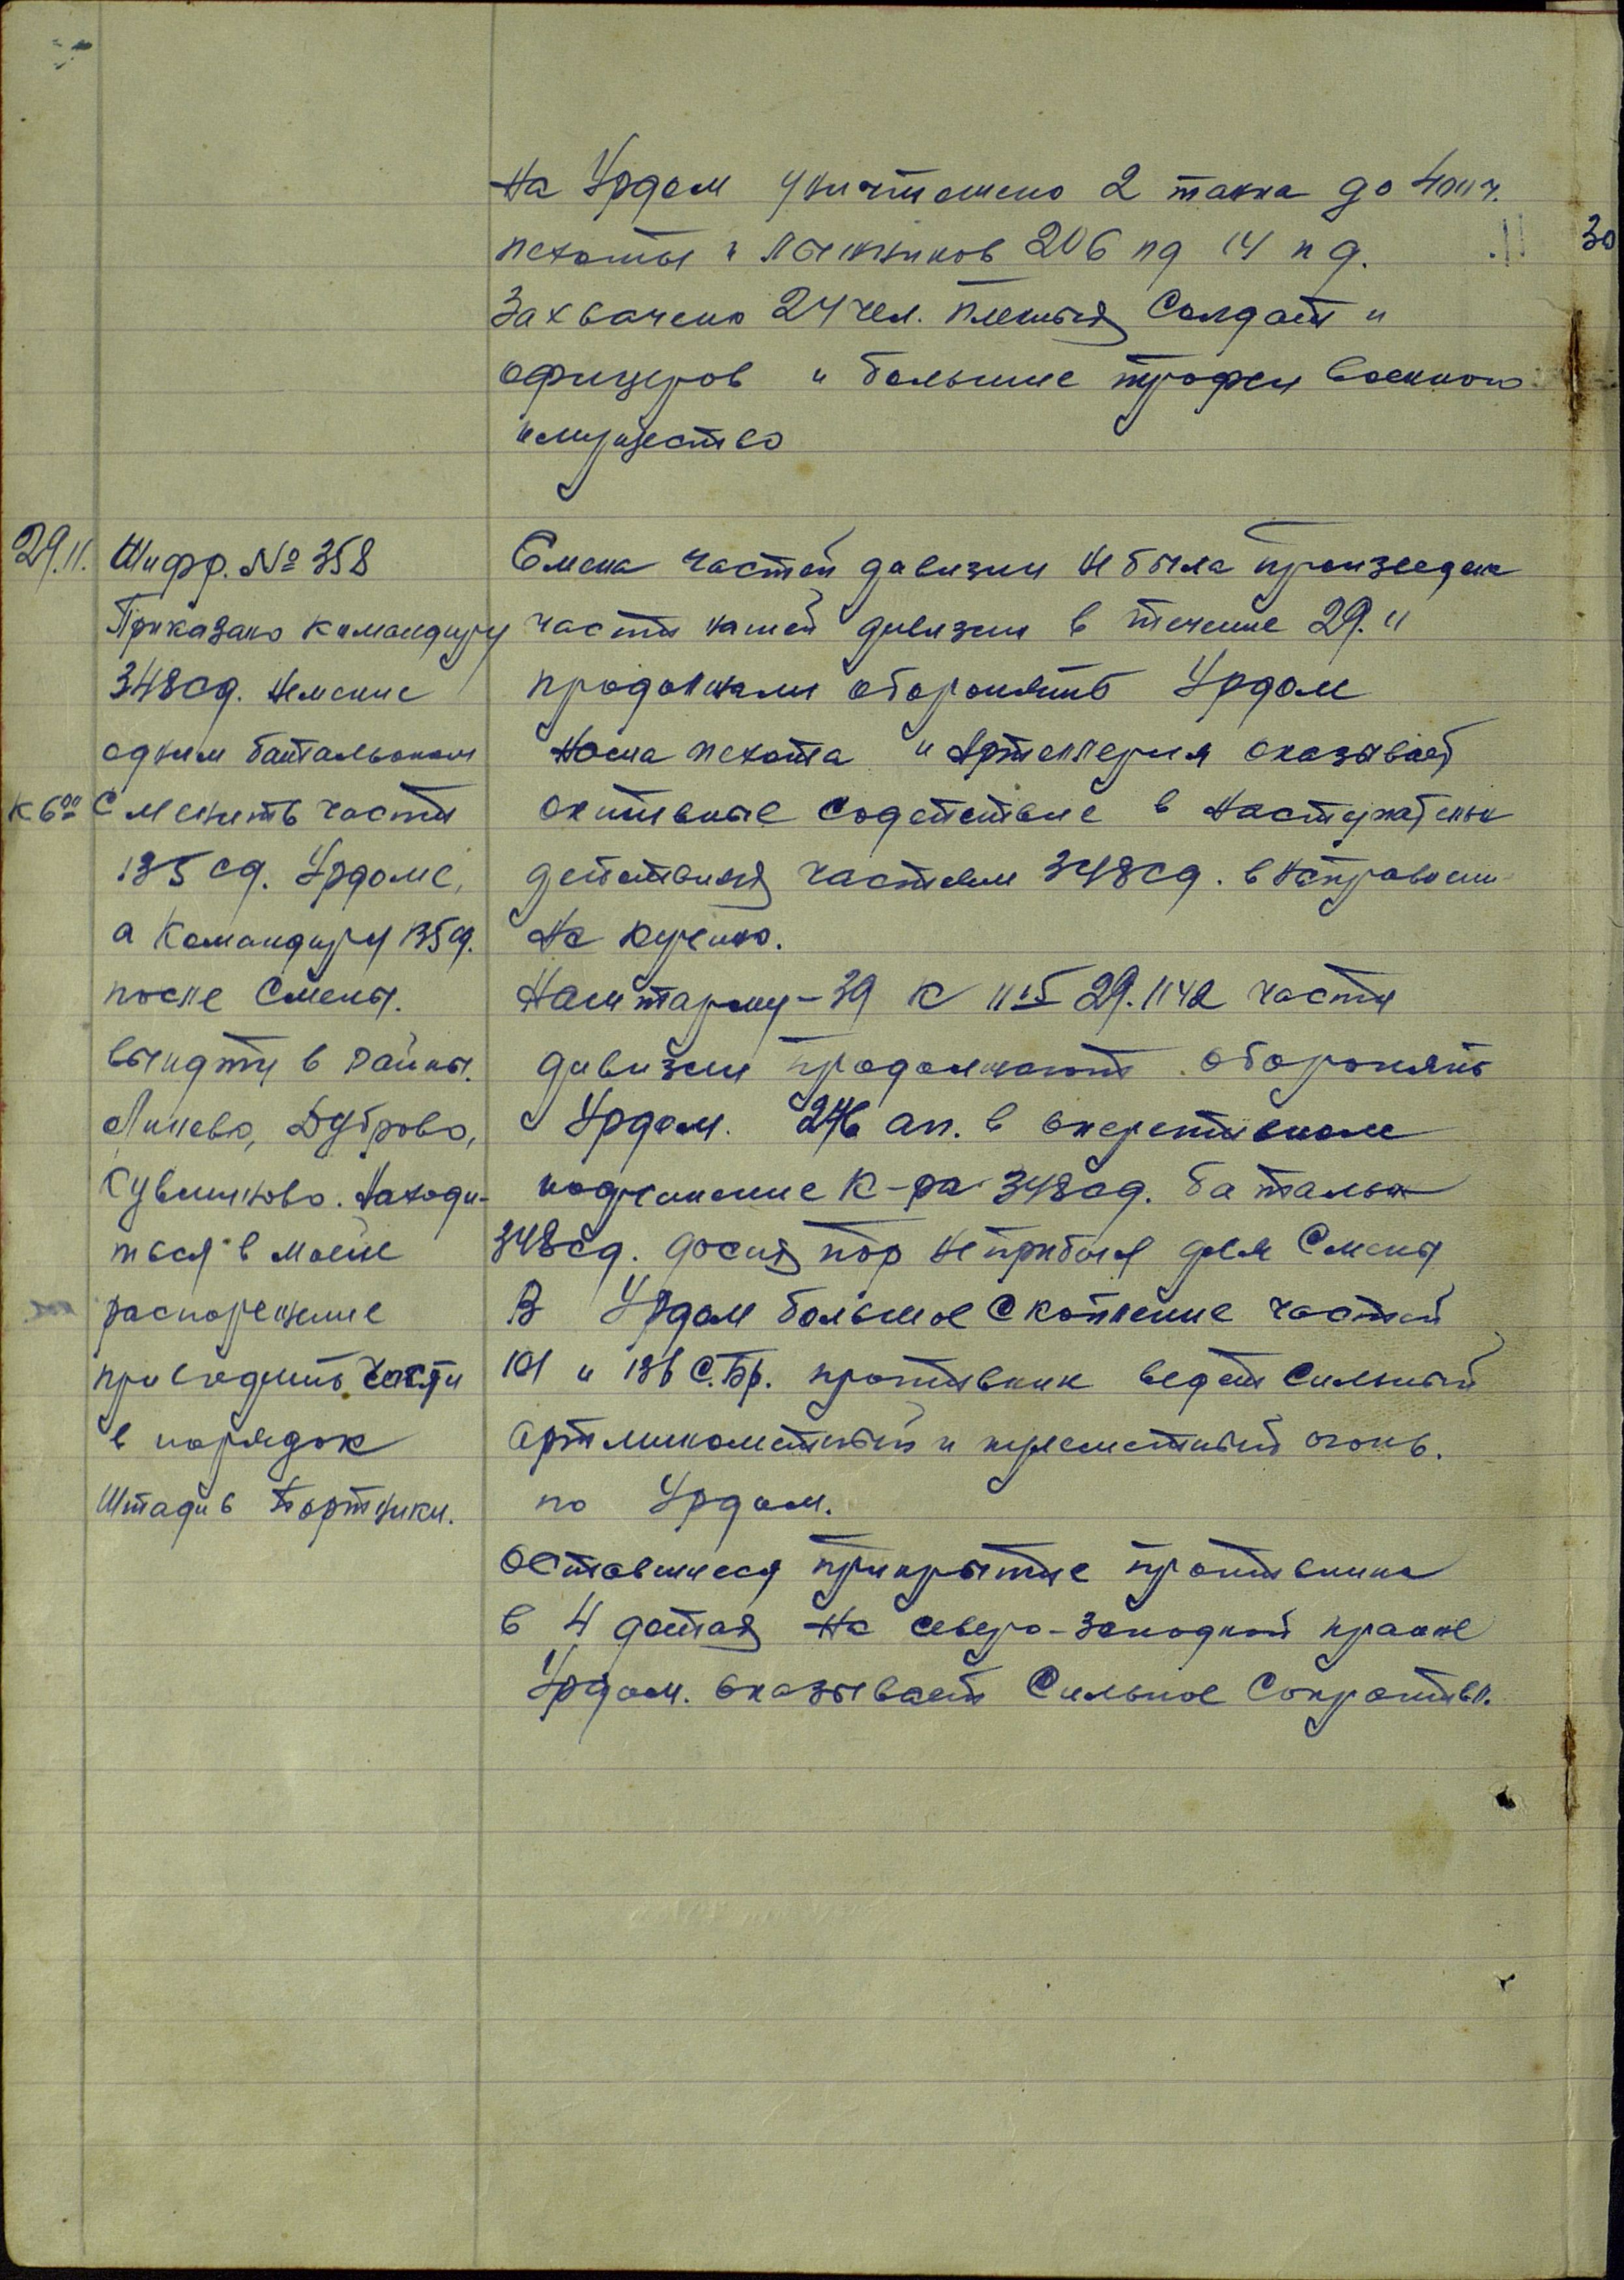 на Урдом уничтожено 2 танка до 400 ч.
пехоты и лыжников 206 пд 14 пд.
30
Захвачено 24 чел. пленных Солдат и
офицеров и большие трофеи военного
имущество
29.11. Шифр. № 358
Приказано командиру
348 сд. не менее
одним батальоном
к 6 00 Сменить части
135 сд. Урдоме,
а Командиру 135 сд.
после Смены.
выидти в районы.
Линево, Дуброво,
Находи-
ться в моем
распорежение
приводить части
в порядок
Штадив Портянки.
Смена частей дивизии не была произведена
части нашей дивизии в течение 29.11
продолжали оборонять Урдом
Наша пехота и Артеллерия оказывает
активные содействие в наступательн
действиях частям 348 сд. в направлении
на
Нашторму-39 к 11 15 29.11.42 части
дивизии продолжают оборонять
Урдом. 276 ап. в оперативном
подчинение к-ра 348 сд. батальон
348 сд. досих пор не прибыл для Смены
В Урдом большое скопление частей
101 и 136 С.Бр. противник ведет сильный
Артминометный и пулеметный огонь.
по Урдом.
оставшиеся прикрытие противника
в 4 дотах на северо-западной краине
Урдом. оказывает Сильное Сопротивл.